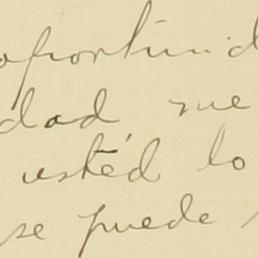 oportuni
dad me
usté lo
se puede